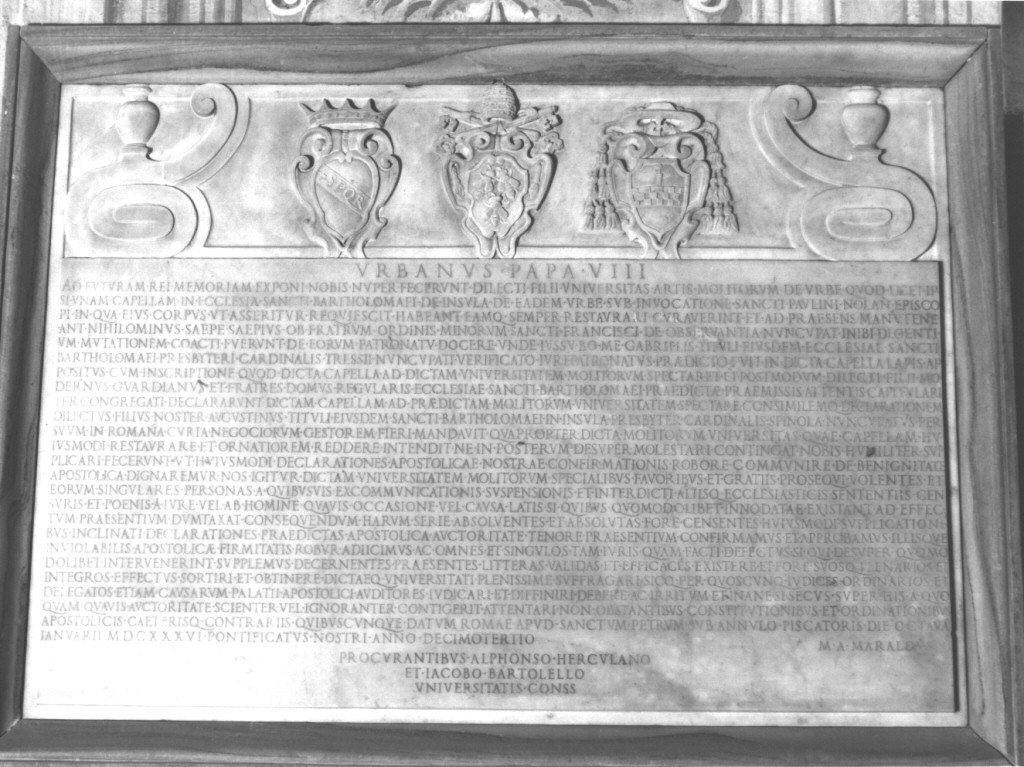 S·P·Q·R
VRBANVS · PAPA · VIII
AD FVTVRAM REI MEMORIAM EXPONI NOBIS NVPER FECERVNT DILECTI FILII VNIVERSITAS ARTIS MOLITORVM DE VRBE QVOD LICET IP
SI VNAM CAPELLAM IN ECCLESIA SANCTI BARTHOLOMAEI DE INSVLA DE EADEM VRBE SVB INVOCATIONE SANCTI PAVLINI NOLAN EPISCO
PI IN QVA EIVS CORPVS VT ASSERITVR REQVIESCIT HABEANT EAMQ SEMPER RESTAVRARI CVRAVERINT ET AD PRAESENS MANVTENE
ANT NIHILOMINVS SAEPE SAEPIVS OB FRATRVM ORDINIS MINORVM SANCTI FRANCISCI DE OBSERVANTIA NVNCVPAT INIBI DEGENTI
VM MVTATIONEM COACTI FVERVNT DE EORVM PATRONATV DOCERE VNDE IVSSV BO ME GABRIELIS TITVLI EIVSDEM ECCLESIAE SANCTI
BARTHOLOMAEI PRESBYTERI CARDINALIS TRESSII NVNCVPATI VERIFICATO IVRE PATRONATVS PRÆDICTO FVIT IN DICTA CAPELLA LAPIS AP
POSITVS CVM INSCRIPTIONE QVOD DICTA CAPELLA AD DICTAM VNIVERSITATEM MOLITORVM SPECTARET ET POSTMODVM DILECTI FILII MO
DERNVS GVARDIANVS ET FRATRES DOMVS REGVLARIS ECCLESIAE SANCTI BARTHOLOMAEI PRAEDICTÆ PRAEMISSIS ATTENTIS CAPITVLARI
TER CONGREGATI DECLARARVNT DICTAM CAPELLAM AD PRÆDICTAM MOLITORVM VNIVERSITATEM SPECTARE CONSIMILEMQ DECLARATIONEM
DILECTVS FILIVS NOSTER AVGVSTINVS TITVLI EIVSDEM SANCTI BARTHOLOMAEI IN INSVLA PRESBYTER CARDINALIS SPINOLA NVNCVPATVS PER
SVVM IN ROMANA CVRIA NEGOCIORVM GESTOREM FIERI MANDAVIT QVAPROPTER DICTA MOLITORVM VNIVERSITAS QVAE CAPELLAM HV
IVSMODI RESTAVRARE ET ORNATIOREM REDDERE INTENDIT NE IN POSTERVM DESVPER MOLESTARI CONTINGAT NOBIS HVMILITER SVP
PLICARI FECERVNT VT HVIVSMODI DECLARATIONES APOSTOLICAE NOSTRAE CONFIRMATIONIS ROBORE COMMVNIRE DE BENIGNITATE
APOSTOLICA DIGNAREMVR NOS IGITVR DICTAM VNIVERSITATEM MOLITORVM SPECIALIBVS FAVORIBVS ET GRATIIS PROSEQVI VOLENTES ET
EORVM SINGVLARES PERSONAS A QVIBVSVIS EXCOMMVNICATIONIS SVSPENSIONIS ET INTERDICTI ALIISQ ECCLESIASTICIS SENTENTIIS CEN
SVRIS ET POENIS A IVRE VEL AB HOMINE QVAVIS OCCASIONE VEL CAVSA LATIS SI QVIBVS QVOMODOLIBET INNODATAE EXISTANT AD EFFEC
TVM PRAESENTIVM DVMTAXAT CONSEQVENDVM HARVM SERIE ABSOLVENTES ET ABSOLVTAS FORE CENSENTES HVIVSMODI SVPPLICATIONI
BVS INCLINATI DECLARATIONES PRAEDICTAS APOSTOLICA AVCTORITATE TENORE PRAESENTIVM CONFIRMAMVS ET APPROBAMVS ILLISQVE
INVIOLABILIS APOSTOLICÆ FIRMITATIS ROBVR ADIICIMVS AC OMNES ET SINGVLOS TAM IVRIS QVAM FACTI DEFECTVS SI QVI DESVPER QVOMO
DOLIBET INTERVENERINT SVPPLEMVS DECERNENTES PRAESENTES LITTERAS VALIDAS ET EFFICACES EXISTERE ET FORE SVOSQ PLENARIOS ET
INTEGROS EFFECTVS SORTIRI ET OBTINERE DICTAEQ VNIVERSITATI PLENISSIME SVFFRAGARI SICQ PER QVOSCVNQ IVDICES ORDINARIOS ET
DELEGATOS ETIAM CAVSARVM PALATII APOSTOLICI AVDITORES IVDICARI ET DIFFINIRI DEBERE AC IRRITVM ET INANE SI SECVS SVPER HIS A QVO
QVAM QVAVIS AVCTORITATE SCIENTER VEL IGNORANTER CONTIGERIT ATTENTARI NON OBSTANTIBVS CONSTITVTIONIBVS ET ORDINATIONIBVS
APOSTOLICIS CAETERISQ CONTRARIIS QVIBVSCVNQVE DATVM ROMAE APVD SANCTVM PETRVM SVB ANNVLO PISCATORIS DIE OCTAVA
IANVARII MDCXXXVI PONTIFICATVS NOSTRI ANNO DECIMOTERTIO
M·A·MARALDVS
PROCVRANTIBVS·ALPHONSO·HERCVLANO
ET·IACOBO·BARTOLELLO
VNIVERSITATIS·CONSS